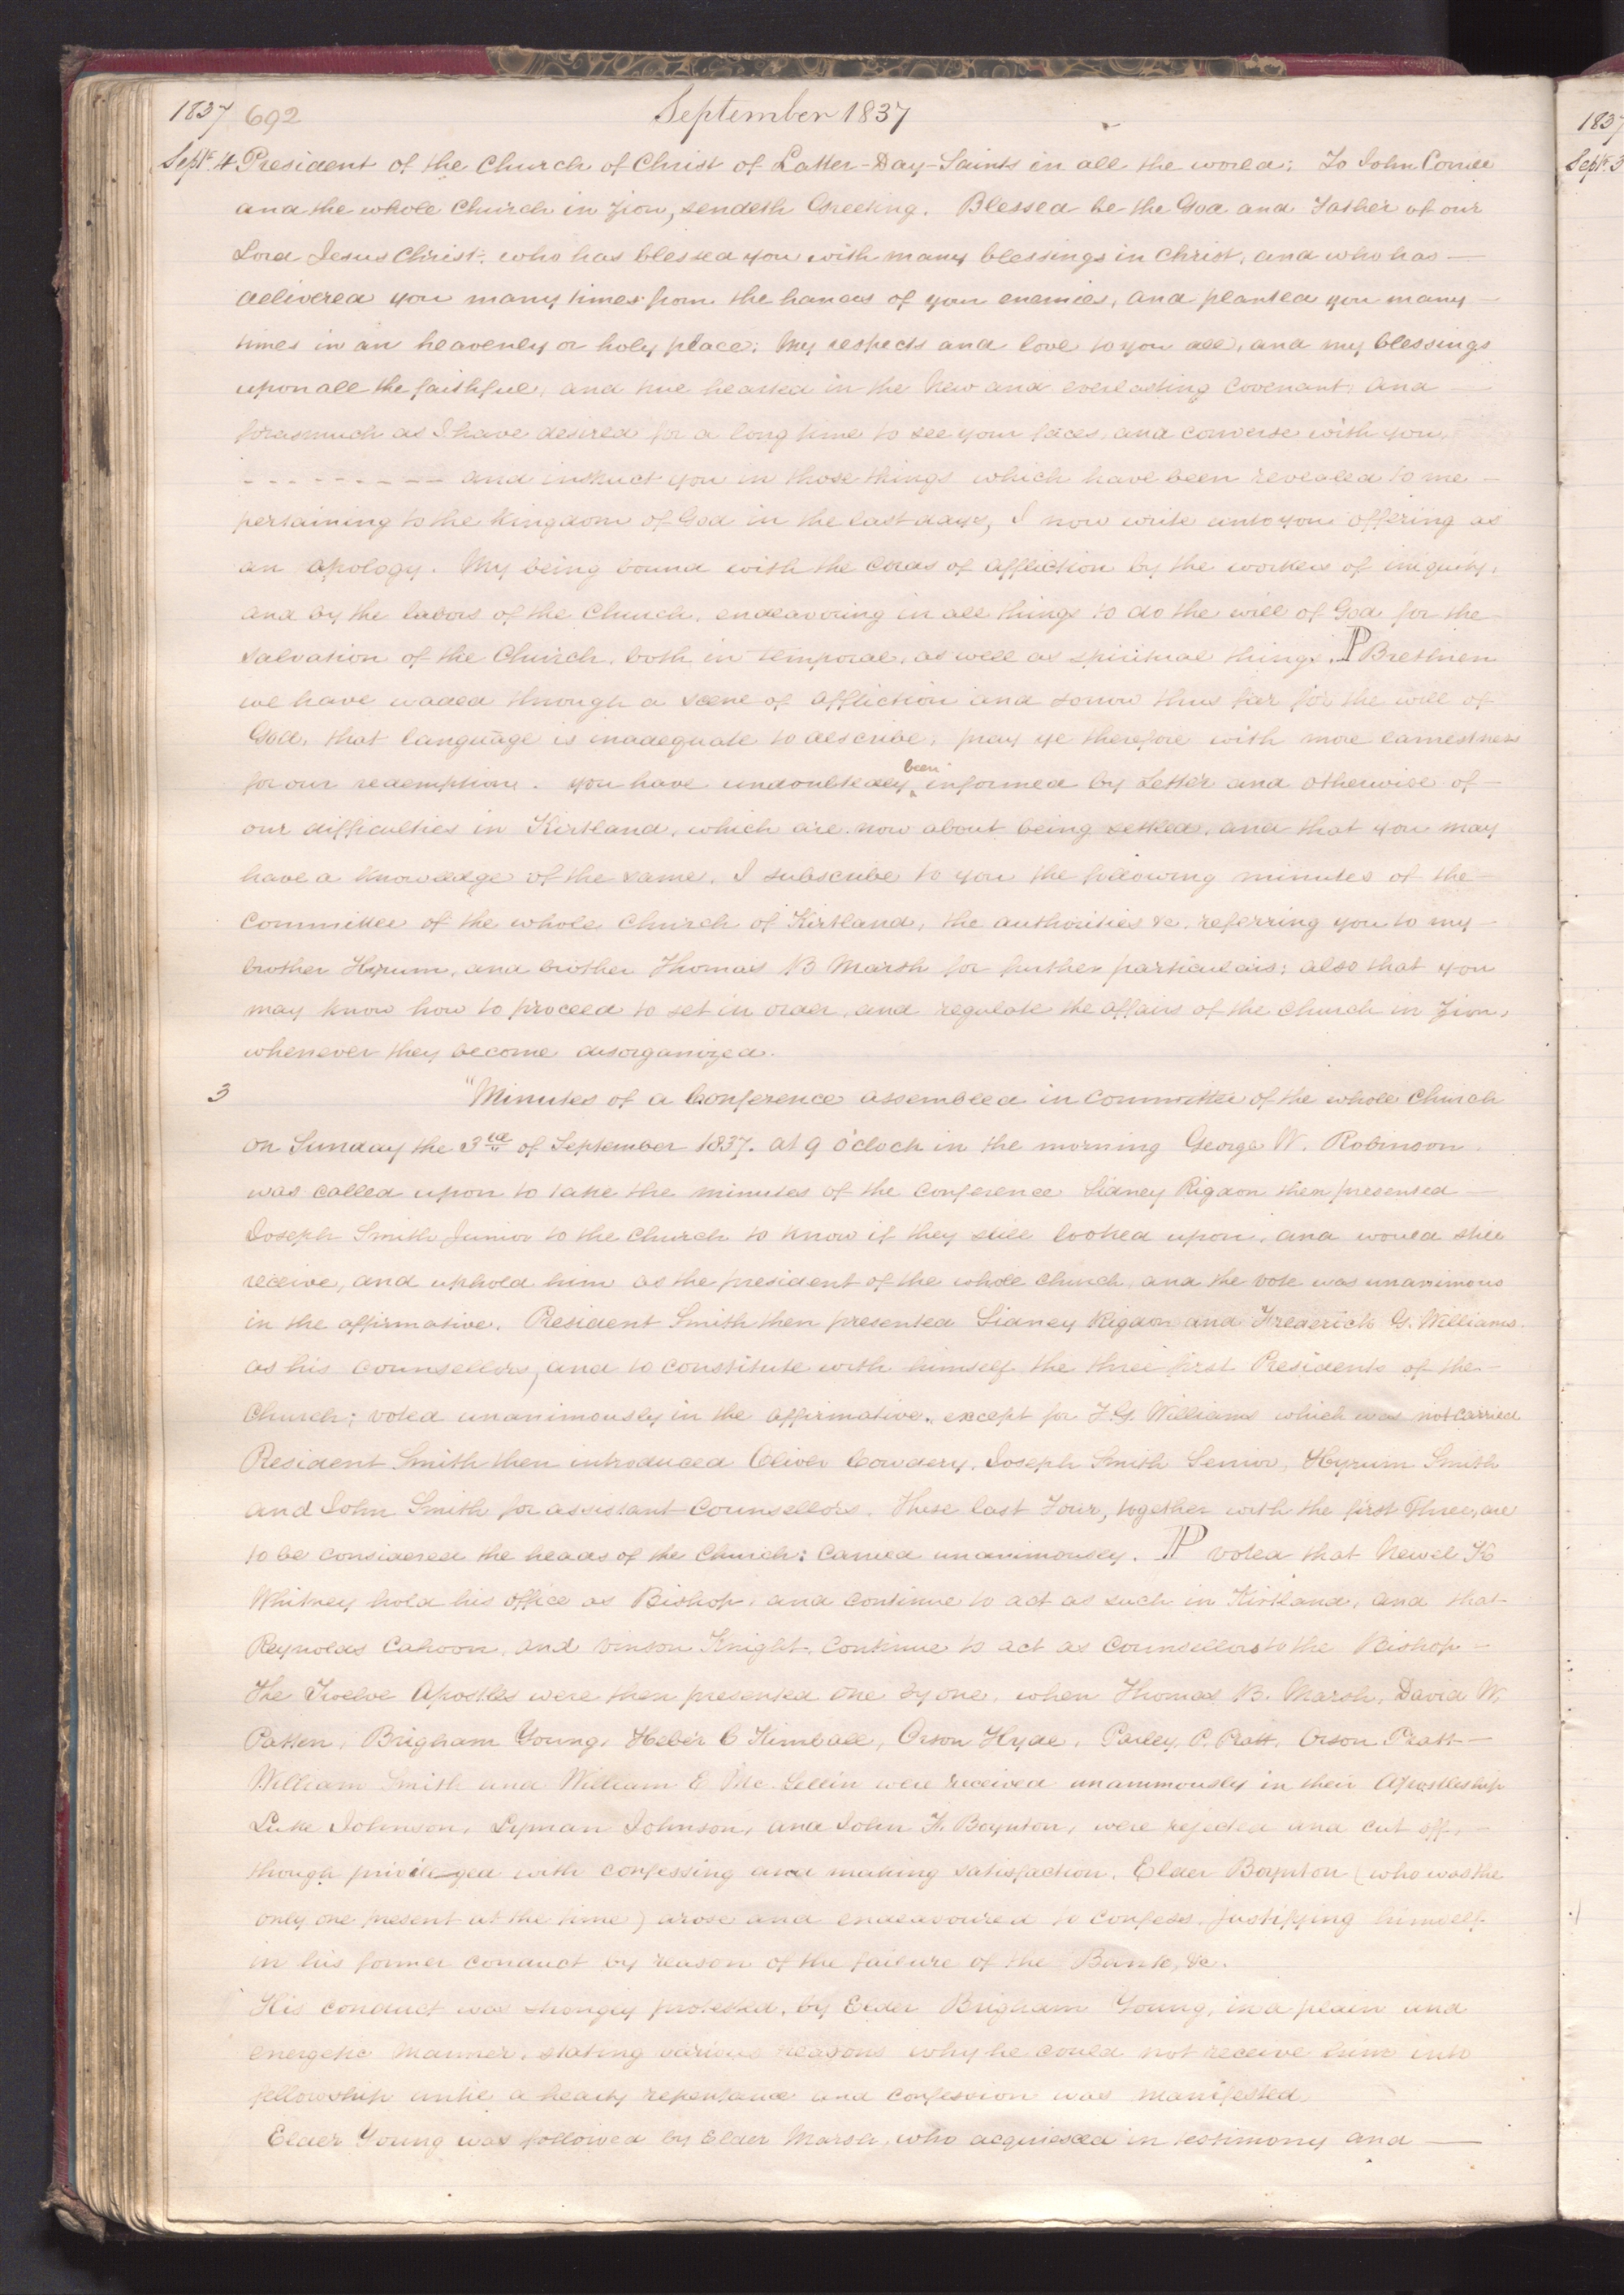 1837 692 September 1837
Sept. 4 President of the Church of Christ of Latter-Day-Saints in all the world; To John Corrill
and the whole Church in Zion, sendeth Greeting. Blessed be the God and Father of our
Lord Jesus Christ, who has blessed you with many blessings in Christ, and who has —
delivered you many times from the hands of your enemies, and planted you many —
times in an heavenly or holy place; My respects and love to you all, and my blessings
upon all the faithful, and true hearted in the New and everlasting Covenant, and —
forasmuch as I have desired for a long time to see your faces, and converse with you,
- - - - - - - - - and instruct you in those things which have been revealed to me —
pertaining to the Kingdom of God in the last days, I now write unto you offering as
an apology. My being bound with the Cords of affliction by the workers of iniquity,
and by the labors of the Church, endeavoring in all things to do the will of God for the
salvation of the Church, both in temporal, as well as spiritual things. P Brethren
we have waded through a scene of affliction and sorrow thus far for the will of
God, that language is inadequate to describe; pray ye therefore with more earnestness
for our redemption. you have undoubtedly been informed by Letter and otherwise of —
our difficulties in Kirtland, which are now about being settled, and that you may
have a knowledge of the same. I subscribe to you the following minutes of the —
Committee of the whole Church of Kirtland, the authorities &c, referring you to my —
brother Hyrum, and brother Thomas B Marsh for further particulars; also that you
may know how to proceed to set in order, and regulate the affairs of the Church in Zion,
whenever they become disorganized.
3 "Minutes of a Conference assembled in Committee of the whole Church
on Sunday the 3rd of September 1837. at 9 o'clock in the morning George W. Robinson
was called upon to take the minutes of the Conference Sidney Rigdon then presented —
Joseph Smith Junior to the Church to know if they still looked upon, and would still
receive, and uphold him as the president of the whole Church, and the vote was unanimous
in the affirmative. President Smith then presented Sidney Rigdon and Frederick G. Williams.
as his Counsellors, and to constitute with himself the three first Presidents of the —
Church; voted unanimously in the affirmative, except for F. G. Williams which was not carried
President Smith then introduced Oliver Cowdery, Joseph Smith Senior, Hyrum Smith
and John Smith for assistant Counsellors. These last Four, together with the first Three, are
to be considered the heads of the Church; carried unanimously. P voted that Newel K
Whitney hold his office as Bishop, and continue to act as such in Kirtland, and that
Reynolds Cahoon, and Vinson Knight, Continue to act as Counsellors to the Bishop —
The Twelve Apostles were then presented one by one, when Thomas B. Marsh, David W.
Patten, Brigham Young, Heber C Kimball, Orson Hyde, Parley P. Pratt, Orson Pratt —
William Smith and William E Mc. Lellin were received unanimously in their Apostleship
Luke Johnson, Lyman Johnson, and John F. Boynton, were rejected and cut off, —
though privileged with confessing and making satisfaction. Elder Boynton (who was the
only one present at the time) arose and endeavoured to confess, justifying himself
in his former conduct by reason of the failure of the Bank, &c.
His conduct was strongly protested, by Elder Brigham Young, in a plain and
energetic manner, stating various reasons why he could not receive him into
fellowship until a hearty repentance and confession was manifested.
Elder Young was followed by Elder Marsh, who acquiesced in testimony and —
1837
Sept. 3